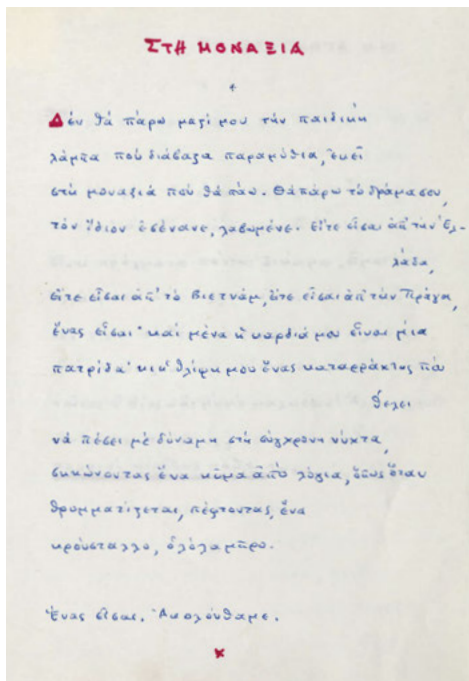 ΣΤΗ ΜΟΝΑΞΙΑ
Δέν θά πάρω μαζί μου τήν παιδική
λάμπα πού διάβαζα παραμύθια, ἐκεῖ
στή μοναξιά πού θά πάω. Θά πάρω τό δράμα σου,
τόν ἴδιον ἐσένανε, λαβωμένε. Εἴτε εἶσαι ἀπ' τήν Ἑλ-
λάδα,
εἴτε εἶσαι ἀπ' τό Βιετνάμ, εἴτε εἶσαι ἀπ' τήν Πράγα,
ἕνας εἶσαι· καί μένα ἡ καρδιά μου εἶναι μιά
πατρίδα· κι ἡ θλίψη μου ἕνας καταρράκτης πού
θέλει
νά πέσει μέ δύναμη στή σύγχρονη νύχτα,
σηκώνοντας ἕνα κῦμα ἀπό λόγια, ὅπως ὅταν
θρομματίζεται, πέφτοντας, ἕνα
κρούσταλλο, ὁλόλαμπρο.
Ἕνας εἶσαι. Ἀκολούθα με.